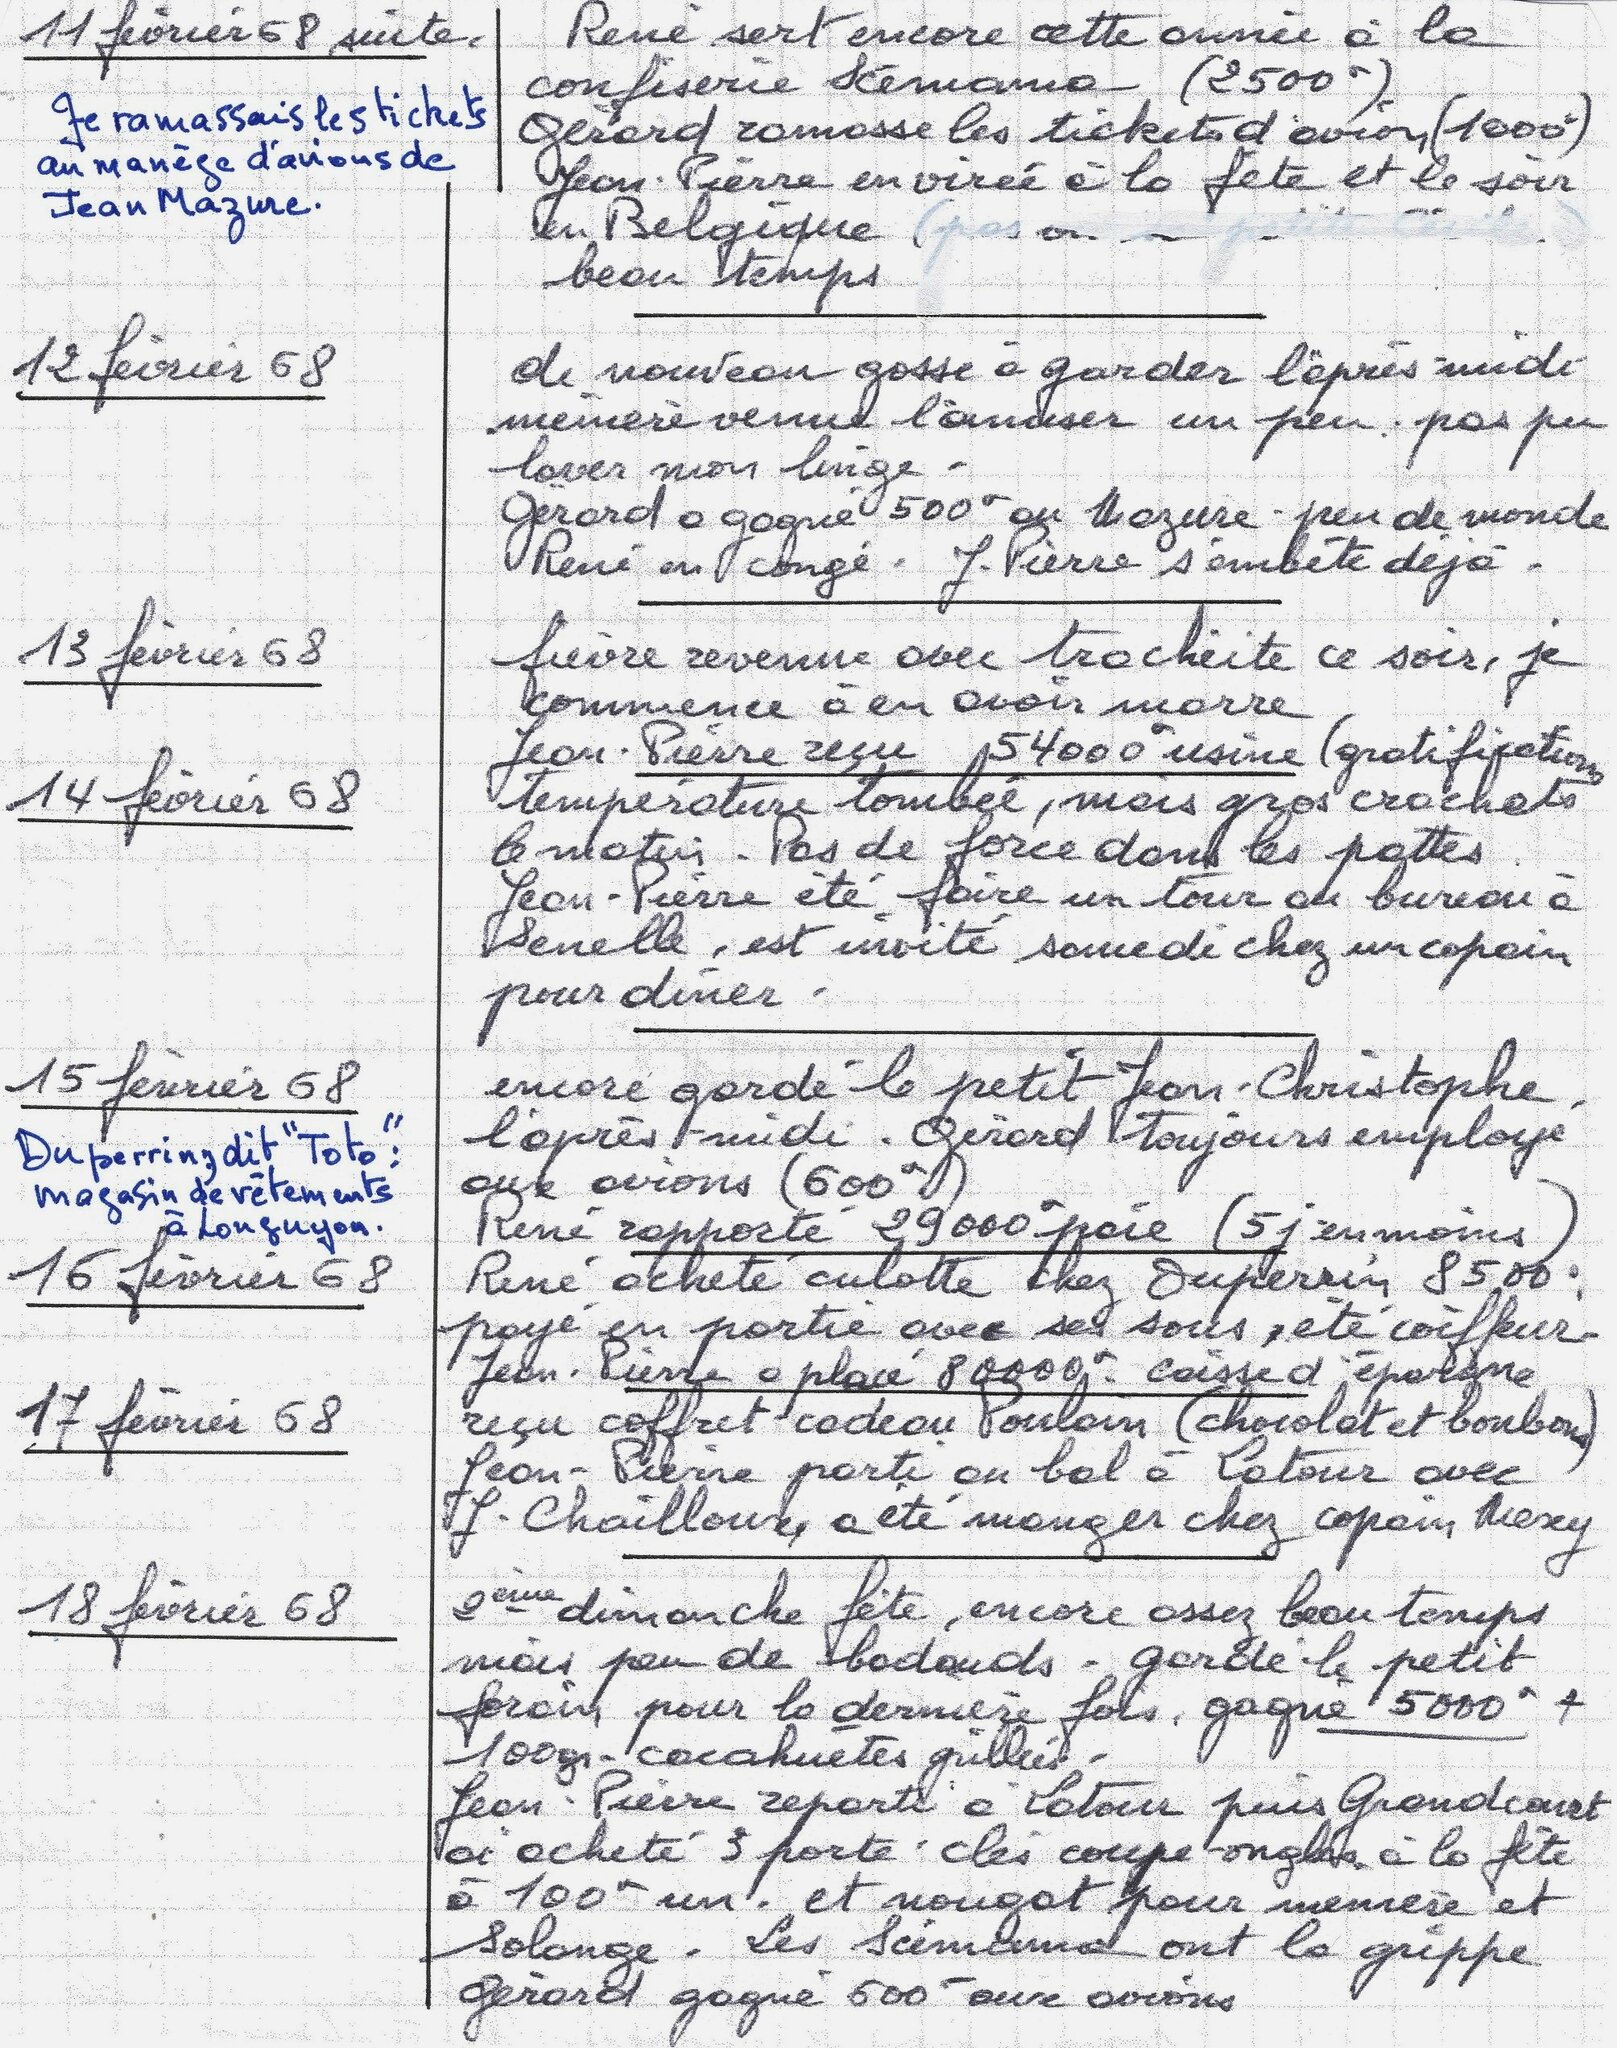 11 février 68 suite.
Je ramassais les tickets
au manège d'avions de
Jean Mazure.
René sert encore cette année à la
confiserie Scemama (2500ᶠ)
Gérard ramasse les tickets d'avion (1000ᶠ)
Jean-Pierre en virée à la fête et le soir
en Belgique (pas
beau temps
12 février 68
de nouveau gosse à garder l'après-midi
mémère venue l'amuser un peu. pas pu
laver mon linge -
Gérard a gagné 500ᶠ au Mazure - peu de monde
René en congé. J. Pierre s'embête déjà.
13 février 68
fièvre revenue avec trachéite ce soir, je
commence à en avoir marre
Jean-Pierre reçu 54000ᶠ usine (gratification)
14 février 68
température tombée, mais gros crachats
le matin. Pas de force dans les pattes.
Jean-Pierre été faire un tour au bureau à
Senelle, est invité samedi chez un copain
pour dîner.
15 février 68
Duperrin, dit "Toto":
magasin de vêtements
à Longuyon.
encore gardé le petit Jean-Christophe
l'après-midi. Gérard toujours employé
aux avions (600ᶠ)
René rapporté 29000ᶠ paie (5j en moins)
16 février 68
René acheté culotte chez Duperrin 8500.
payé en partie avec ses sous, été coiffeur.
Jean-Pierre a placé 80000ᶠ caisse d'épargne
17 février 68
reçu coffret cadeau Poulain (chocolat et bonbons)
Jean-Pierre parti au bal à Latour avec
J. Chailloux, a été manger chez copain Mexy
18 février 68
2ème dimanche fête, encore assez beau temps
mais peu de badauds - gardé le petit
forain pour la dernière fois. gagné 5000ᶠ +
100gr. cacahuètes grillées.
Jean-Pierre reparti à Latour puis Grandcourt
ai acheté 3 porte-clés coupe-ongles à la fête
à 100ᶠ un. et nougat pour mémère et
Solange. Les Scemama ont la grippe
Gérard gagné 600ᶠ aux avions